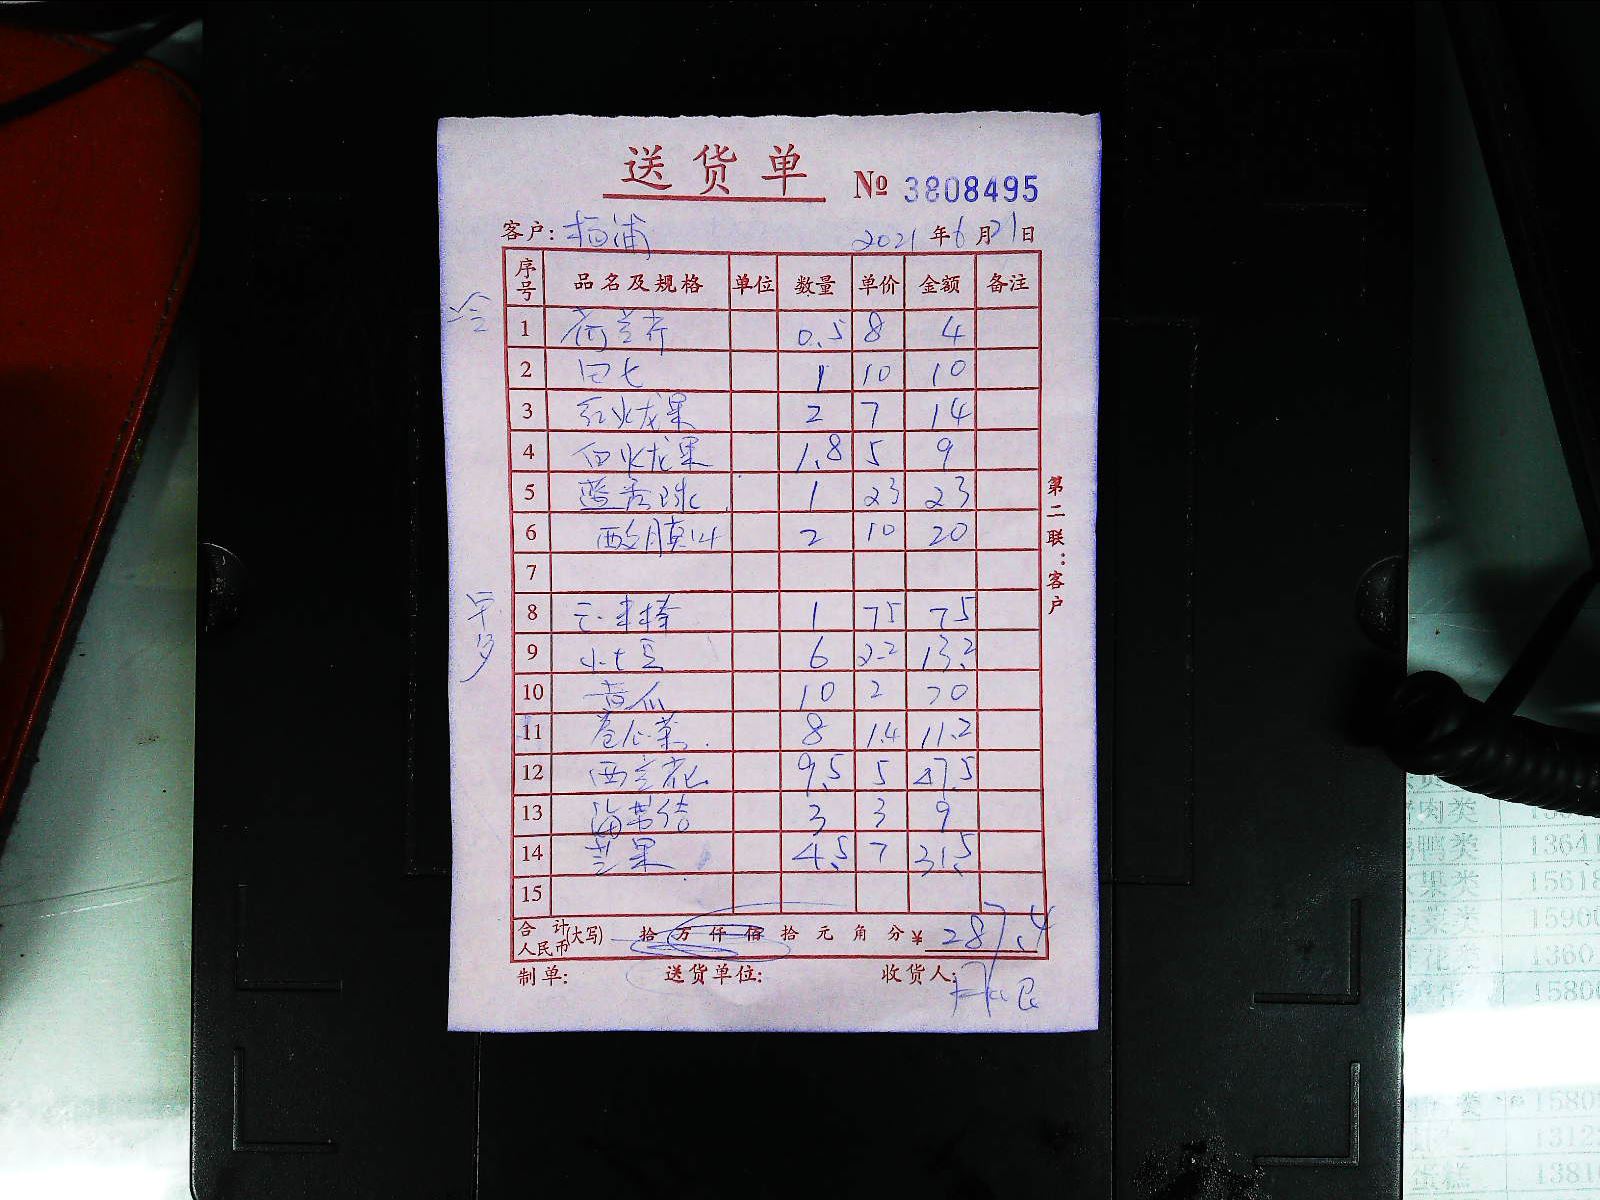 送货单
№ 3808495
客户: 杨浦 2021年6月21日
序号 品名及规格 单位 数量 单价 金额 备注
1 荷兰芹 0.5 8 4
2 1 10 10
3 红火龙果 2 7 14
4 白火龙果 1.8 5 9
5 1 23 23
6 2 10 20
7
8 玉米棒 1 75 75
9 小土豆 6 2.2 13.2
10 黄瓜 10 2 20
11 卷心菜 8 1.4 11.2
12 西兰花 9.5 5 47.5
13 海带结 3 3 9
14 苹果 4.5 7 31.5
15
合计人民币(大写) 拾万仟佰拾元角分 ¥ 287.4
制单: 送货单位: 收货人:
第二联:客户
肉类
鸭类 13641
果类 15618
菜类 1590
花类 1360
1580
类 1580
1312
蛋糕 1381